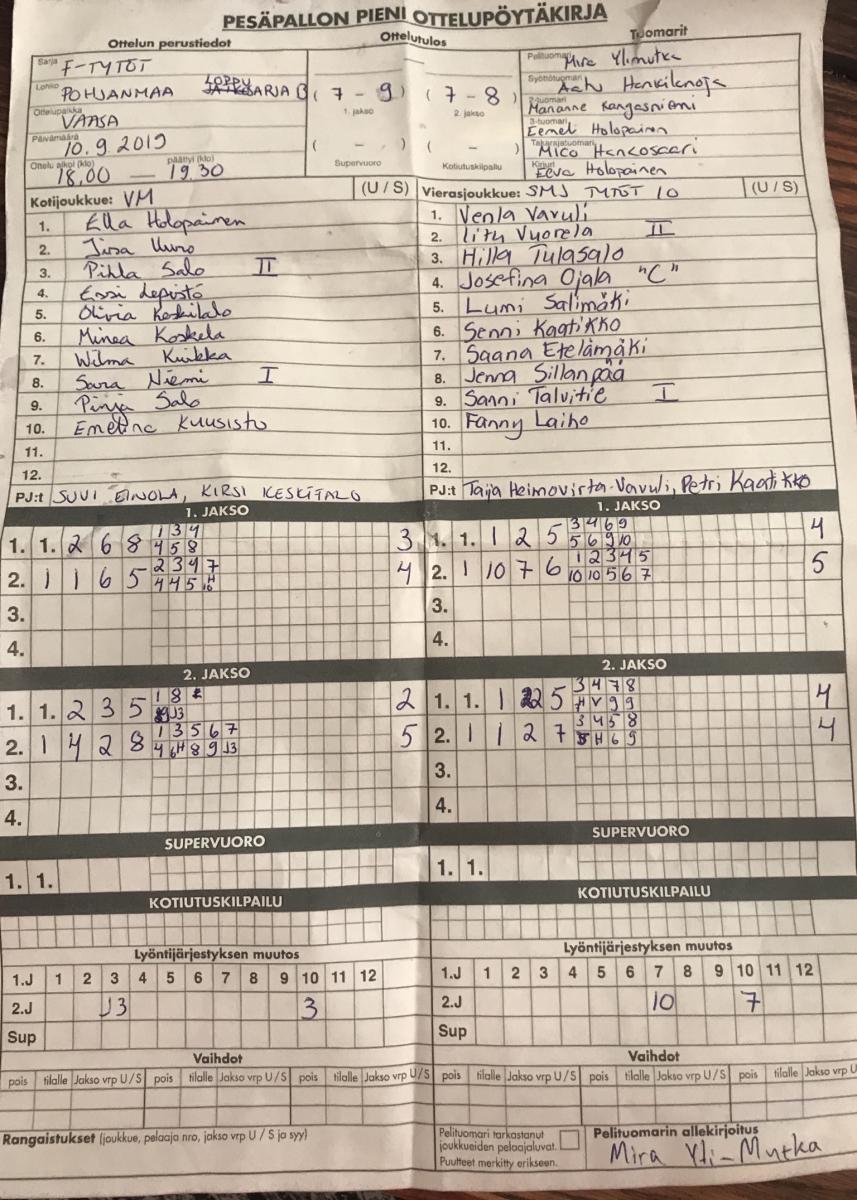 PESÄPALLON PIENI OTTELUPÖYTÄKIRJA
Ottelun perustiedot
Ottelutulos
Tuomarit
Sarja F-TYTÖT
Lohko POHJANMAA LOPPU SARJA B
Ottelupaikka VAASA
Päivämäärä 10.9.2019
Ottelu alkoi (klo) päättyi (klo)
18.00 — 19.30
(7 - 9) (7 - 8)
1. jakso 2. jakso
( - ) ( - )
Supervuoro Kotiutuskilpailu
Pelituomari Mira Ylimutka
Syöttötuomari Aatu Hankilanoja
2-tuomari Marianne Kangasniemi
3-tuomari Eemeli Holopainen
Takarajatuomari Mico Hancosaari
Kirjuri Eeva Holopainen
Kotijoukkue: VM (U / S)
1. Ella Holopainen
2. Jirsa Uuro
3. Pihla Salo II
4. Essi Lepistö
5. Olivia Keskitalo
6. Minea Koskela
7. Wilma Kuikka
8. Sara Niemi I
9. Pinja Salo
10. Emelina Kuusisto
11.
12.
PJ:t SUVI EINOLA, KIRSI KESKITALO
Vierasjoukkue: SMJ TYTÖT 10 (U / S)
1. Venla Vavuli
2. Iitu Vuorela II
3. Hilla Tulasalo
4. Josefina Ojala "C"
5. Lumi Salimäki
6. Senni Kaatikko
7. Saana Etelämäki
8. Jenna Sillanpää
9. Sanni Talvitie I
10. Fanny Laiho
11.
12.
PJ:t Taija Heimovirta-Vavuli, Petri Kaatikko
1. JAKSO
1. 1. 2 6 8 1 3 4 3
4 5 8
2. 1 1 6 5 2 3 4 7 4
4 4 5
3.
4.
1. JAKSO
1. 1. 1 2 5 3 4 6 9 4
5 6 9 10
2. 1 10 7 6 1 2 3 4 5 5
10 10 5 6 7
3.
4.
2. JAKSO
1. 1. 2 3 5 1 8 2
J3
2. 1 4 2 8 1 3 5 6 7 5
4 6H 8 9 J3
3.
4.
2. JAKSO
1. 1. 1 2 5 3 4 7 8 4
H V 9 9
2. 1 1 2 7 3 4 5 8 4
5 H 6 9
3.
4.
SUPERVUORO
1. 1.
SUPERVUORO
1. 1.
KOTIUTUSKILPAILU
KOTIUTUSKILPAILU
Lyöntijärjestyksen muutos
1.J 1 2 3 4 5 6 7 8 9 10 11 12
2.J J3 3
Sup
Lyöntijärjestyksen muutos
1.J 1 2 3 4 5 6 7 8 9 10 11 12
2.J 10 7
Sup
Vaihdot
pois tilalle Jakso vrp U / S pois tilalle Jakso vrp U / S pois tilalle Jakso vrp U / S
Vaihdot
pois tilalle Jakso vrp U / S pois tilalle Jakso vrp U / S pois tilalle Jakso vrp U
Rangaistukset (joukkue, pelaaja nro, jakso vrp U / S ja syy)
Pelituomari tarkastanut
joukkueiden pelaajaluvat.
Puutteet merkitty erikseen.
Pelituomarin allekirjoitus
Mira Yli-Mutka